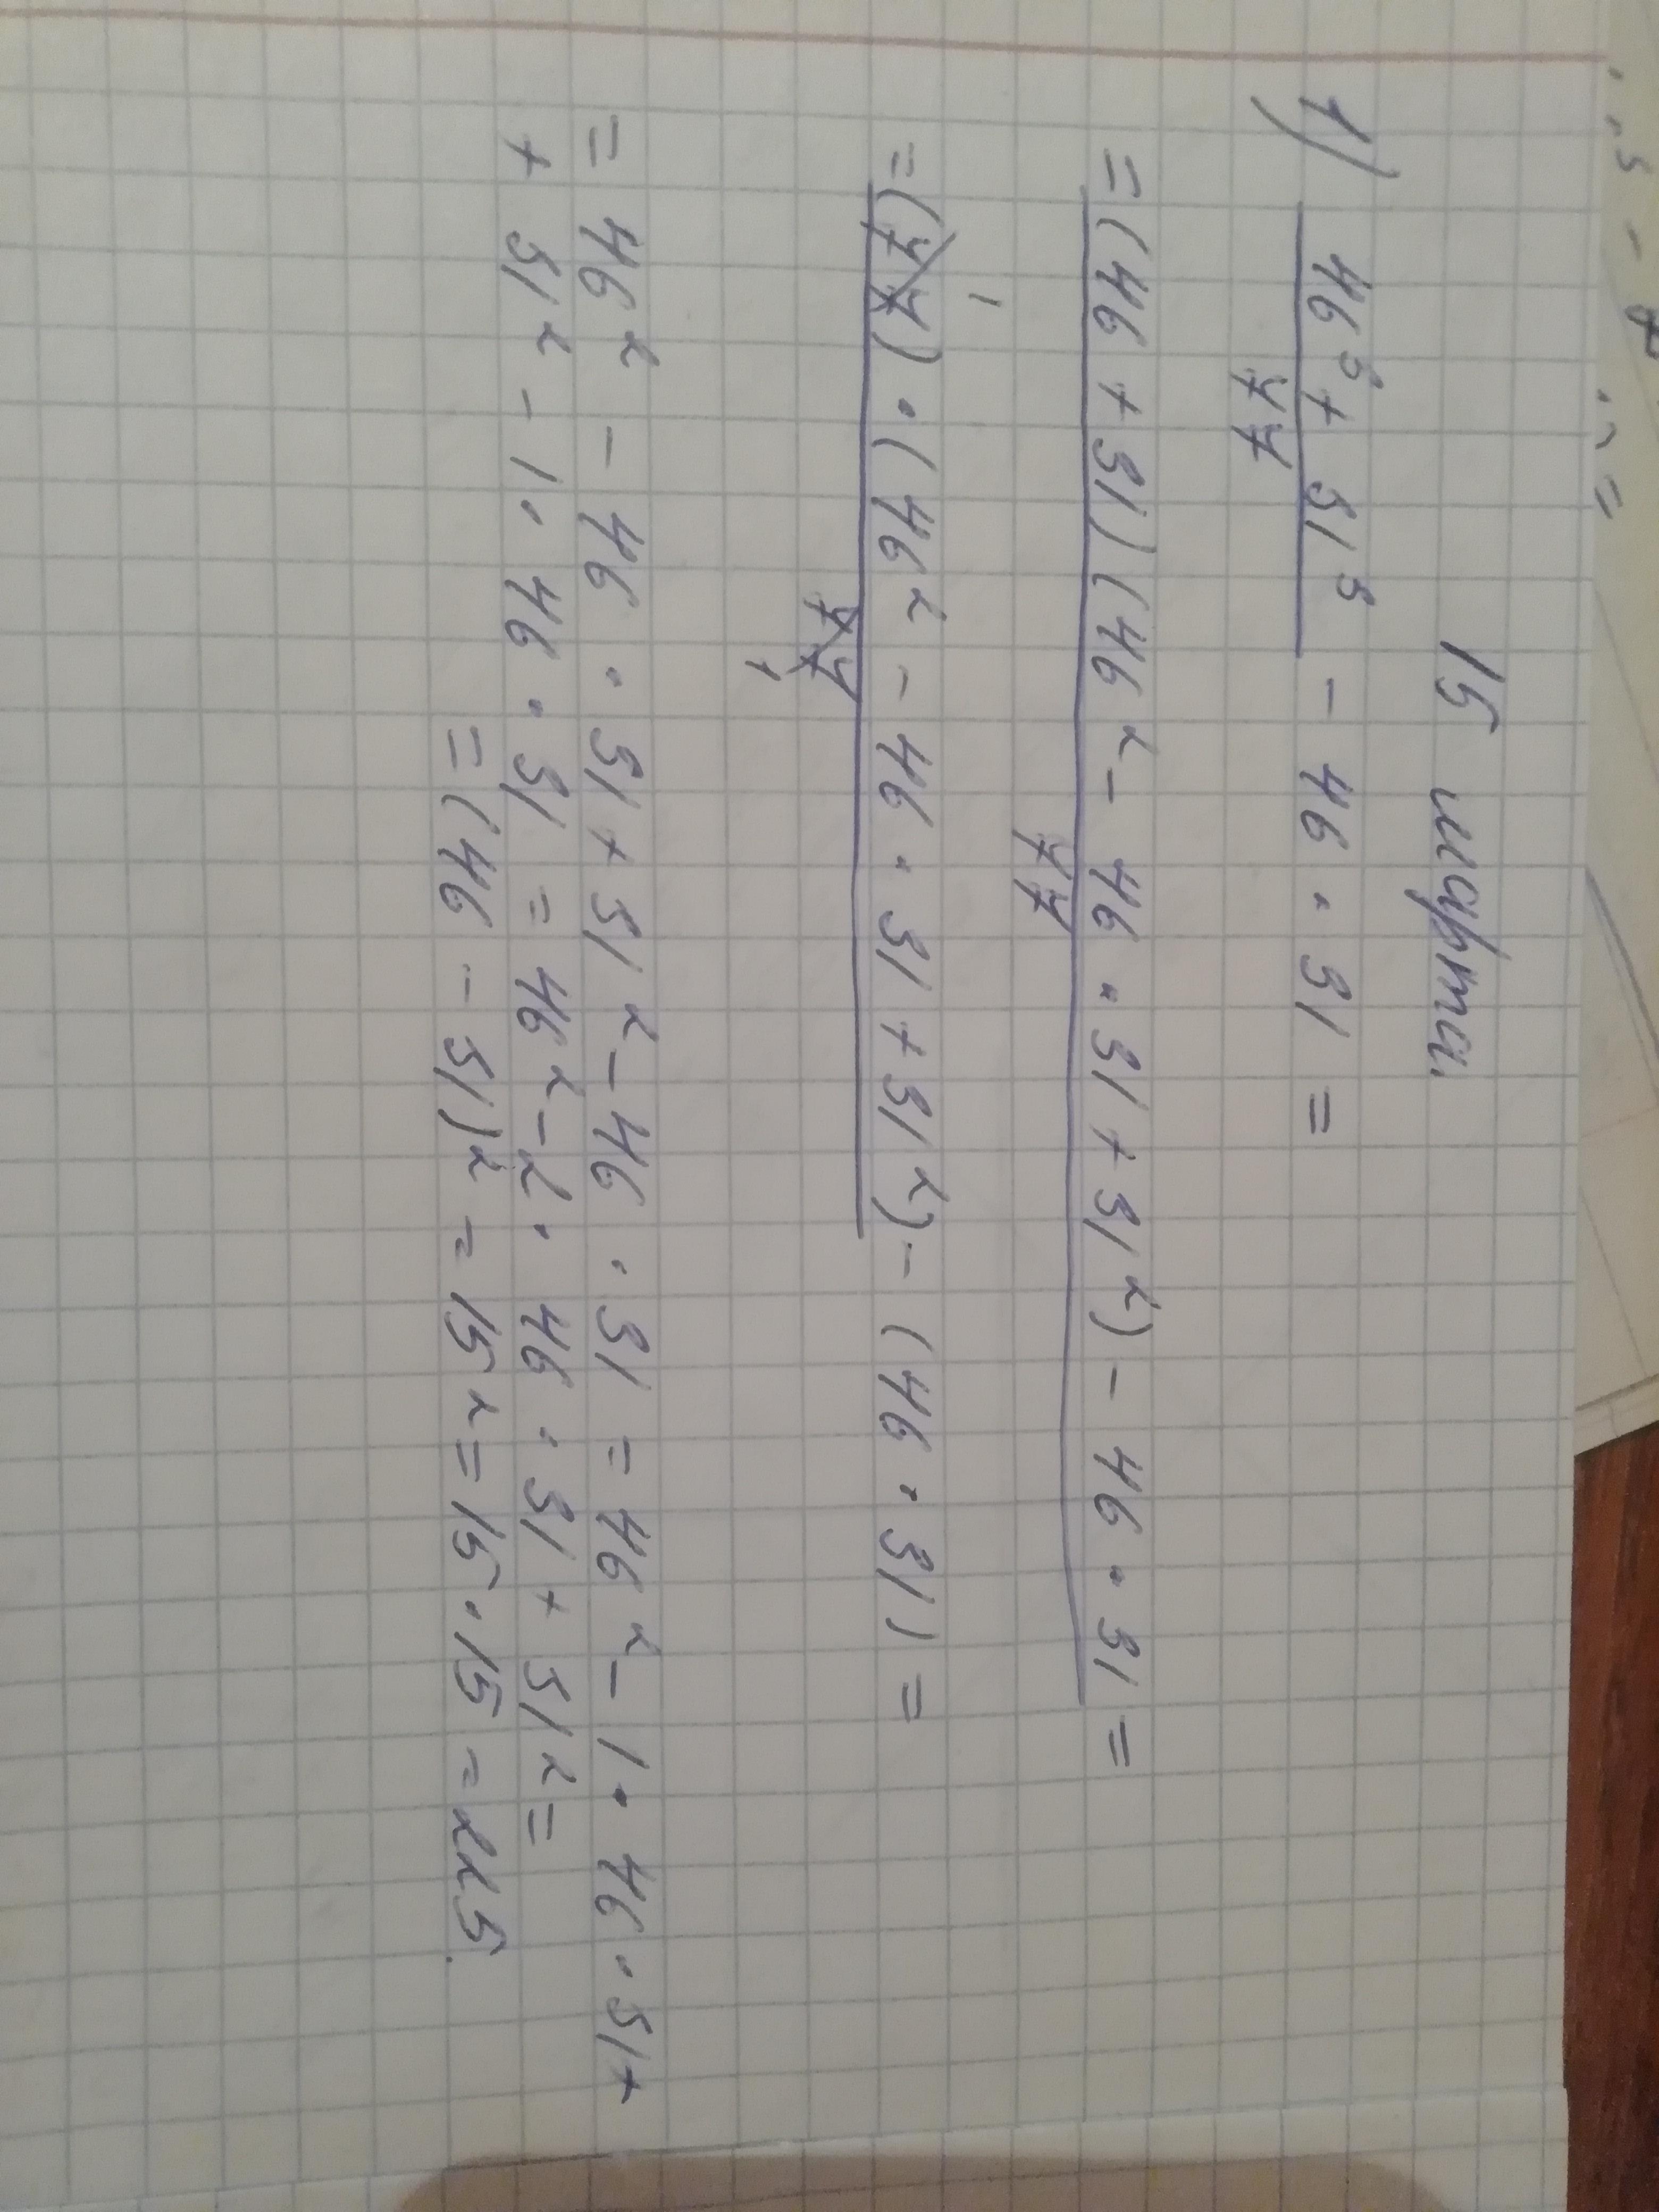 15 марта.
1) (46³ + 31³)/77 - 46 · 31 =
= ((46 + 31)(46² - 46 · 31 + 31²) - 46 · 31)/77 =
= ((77) · (46² - 46 · 31 + 31²))/77 - (46 · 31) =
= 46² - 46 · 31 + 31² - 46 · 31 = 46² - 1 · 46 · 31 +
+ 31² - 1 · 46 · 31 = 46² - 2 · 46 · 31 + 31² =
= (46 - 31)² = 15² = 15 · 15 = 225.